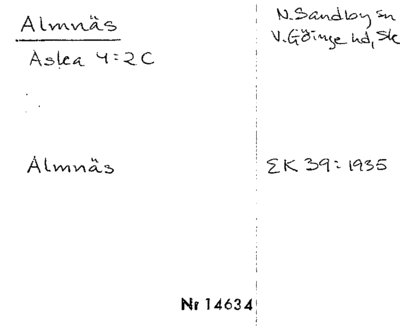 Almnäs
N. Sandby sn
V. Göinge hd, Sk
Aslea 4:2 C
Almnäs
EK 39:1935
Nr 14634